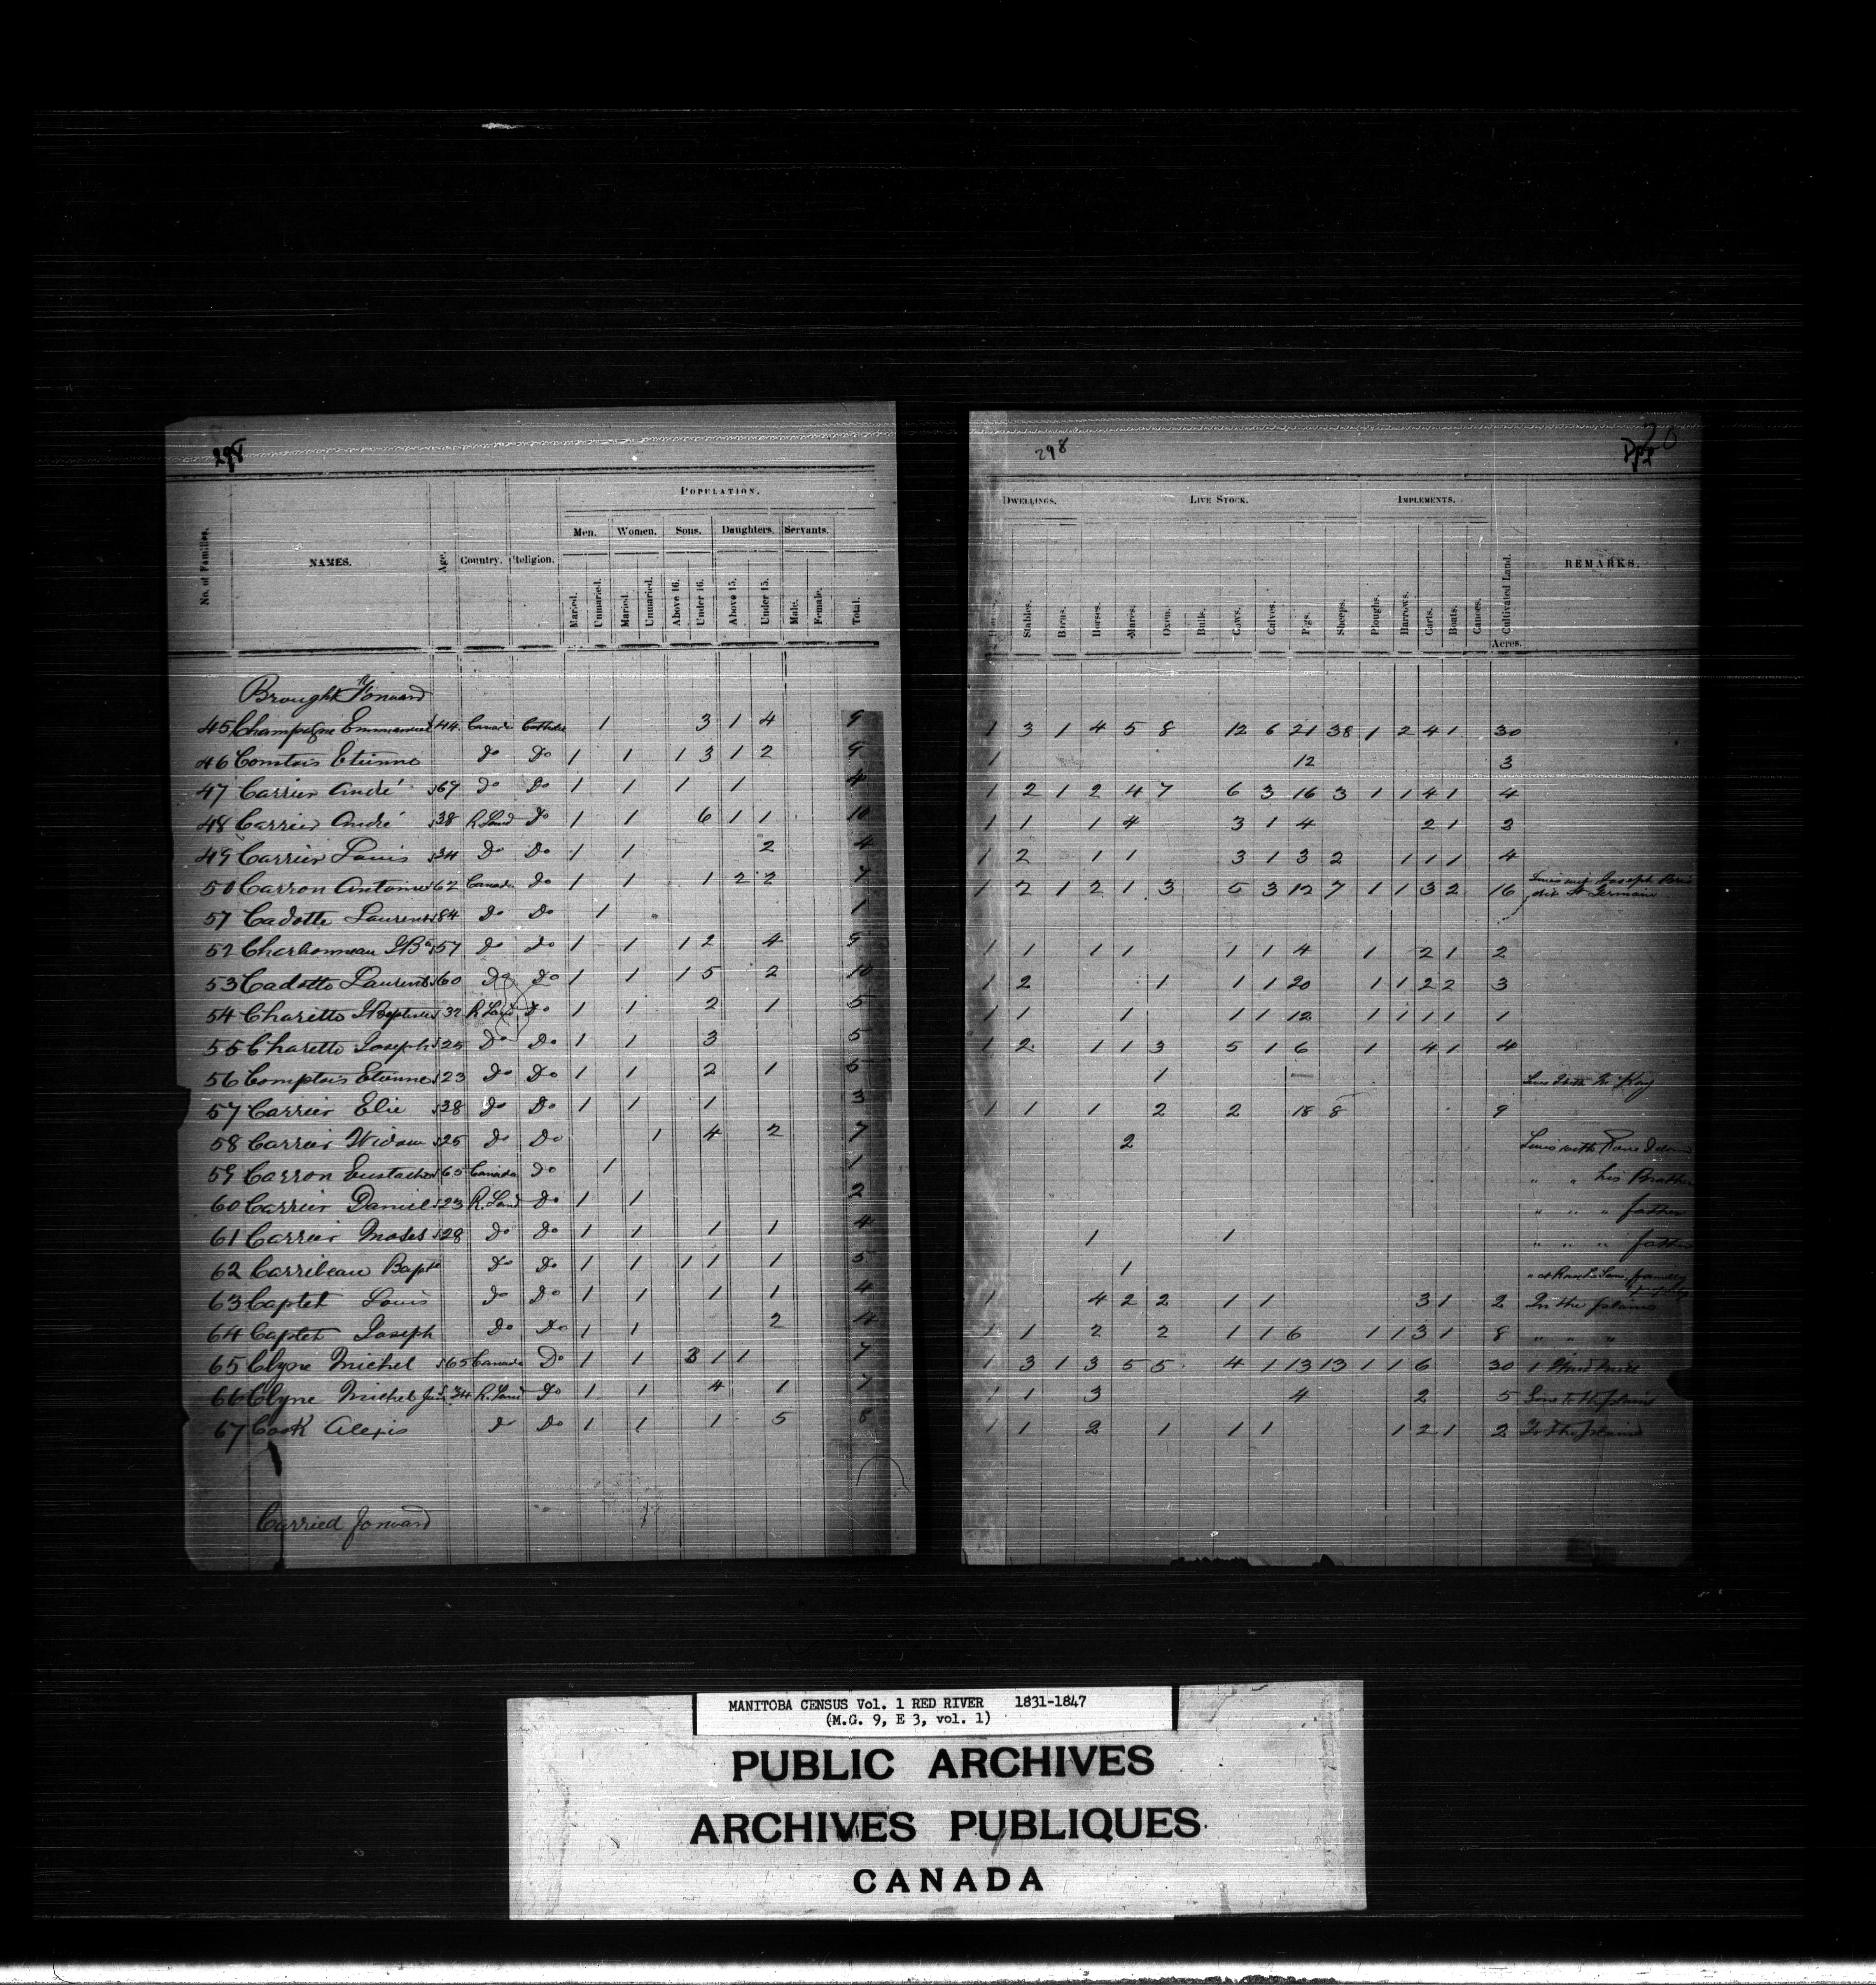 298
POPULATION.
Men. Women. Sons. Daughters. Servants.
No. of Families. NAMES. Age. Country. Religion. Married. Unmarried. Married. Unmarried. Above 16. Under 16. Above 15. Under 15. Male. Female. Total.
Brought Forward
45 Champagne Emmanuel 44 Canada Catholic 1 3 1 4 9
46 Comtois Etienne do Do 1 1 1 3 1 2 9
47 Carrier André 69 do Do 1 1 1 1 4
48 Carrier André 38 R. Land Do 1 1 6 1 1 10
49 Carrier Louis 34 Do Do 1 1 2 4
50 Carron Antoine 62 Canada Do 1 1 1 2 2 7
51 Cadotte Laurent 84 do Do 1 1
52 Charbonneau J Bte 57 do do 1 1 1 2 4 9
53 Cadotte Laurent 60 Do do 1 1 1 5 2 10
54 Charette J Baptiste 32 R Land Do 1 1 2 1 5
55 Charette Joseph 25 Do Do 1 1 3 5
56 Comptois Etienne 23 Do Do 1 1 2 1 5
57 Carrier Elie 28 do Do 1 1 1 3
58 Carrier Widow 25 do Do 1 4 2 7
59 Carron Eustache 65 Canada do 1 1
60 Carrier Daniel 23 R. Land Do 1 1 2
61 Carrier Moses 28 do Do 1 1 1 1 4
62 Carribeau Bapte Do Do 1 1 1 1 1 5
63 Caplet Louis do Do 1 1 1 1 4
64 Caplet Joseph Do Do 1 1 2 4
65 Clyne Michel 65 Canada Do 1 1 3 1 1 7
66 Clyne Michel Jun 34 R. Land Do 1 1 4 1 7
67 Cook Alexis do Do 1 1 1 5 8
Carried forward
298
DWELLINGS. LIVE STOCK. IMPLEMENTS.
Stables. Barns. Horses. Mares. Oxen. Bulls. Cows. Calves. Pigs. Sheeps. Ploughs. Harrows. Carts. Boats. Canoes. Cultivated Land. Acres. REMARKS.
1 3 1 4 5 8 12 6 21 38 1 2 4 1 30
1 12 3
1 2 1 2 4 7 6 3 16 3 1 1 4 1 4
1 1 1 4 3 1 4 2 1 3
1 2 1 1 3 1 3 2 1 1 1 4
1 2 1 2 1 3 5 3 12 7 1 1 3 2 16 Joseph dit St Germain
1 1 1 1 1 1 4 1 2 1 2
1 2 1 1 1 20 1 1 2 2 3
1 1 1 1 1 12 1 1 1 1 1
1 2 1 1 3 5 1 6 1 4 1 4
1 — Lives with Mr Kay
1 1 1 2 2 18 8 9
2 Lives with
" " his Brother
" " " father
1 1 " " " father
1
1 4 2 2 1 1 3 1 2 In the plains
1 1 2 2 1 1 6 1 1 3 1 8 " " "
1 3 1 3 5 5 4 1 13 13 1 1 6 30 1 Wind Mill
1 1 3 4 2 5 plains
1 1 2 1 1 1 1 2 1 2 To the plains
MANITOBA CENSUS Vol. 1 RED RIVER 1831-1847
(M.G. 9, E 3, vol. 1)
PUBLIC ARCHIVES
ARCHIVES PUBLIQUES
CANADA